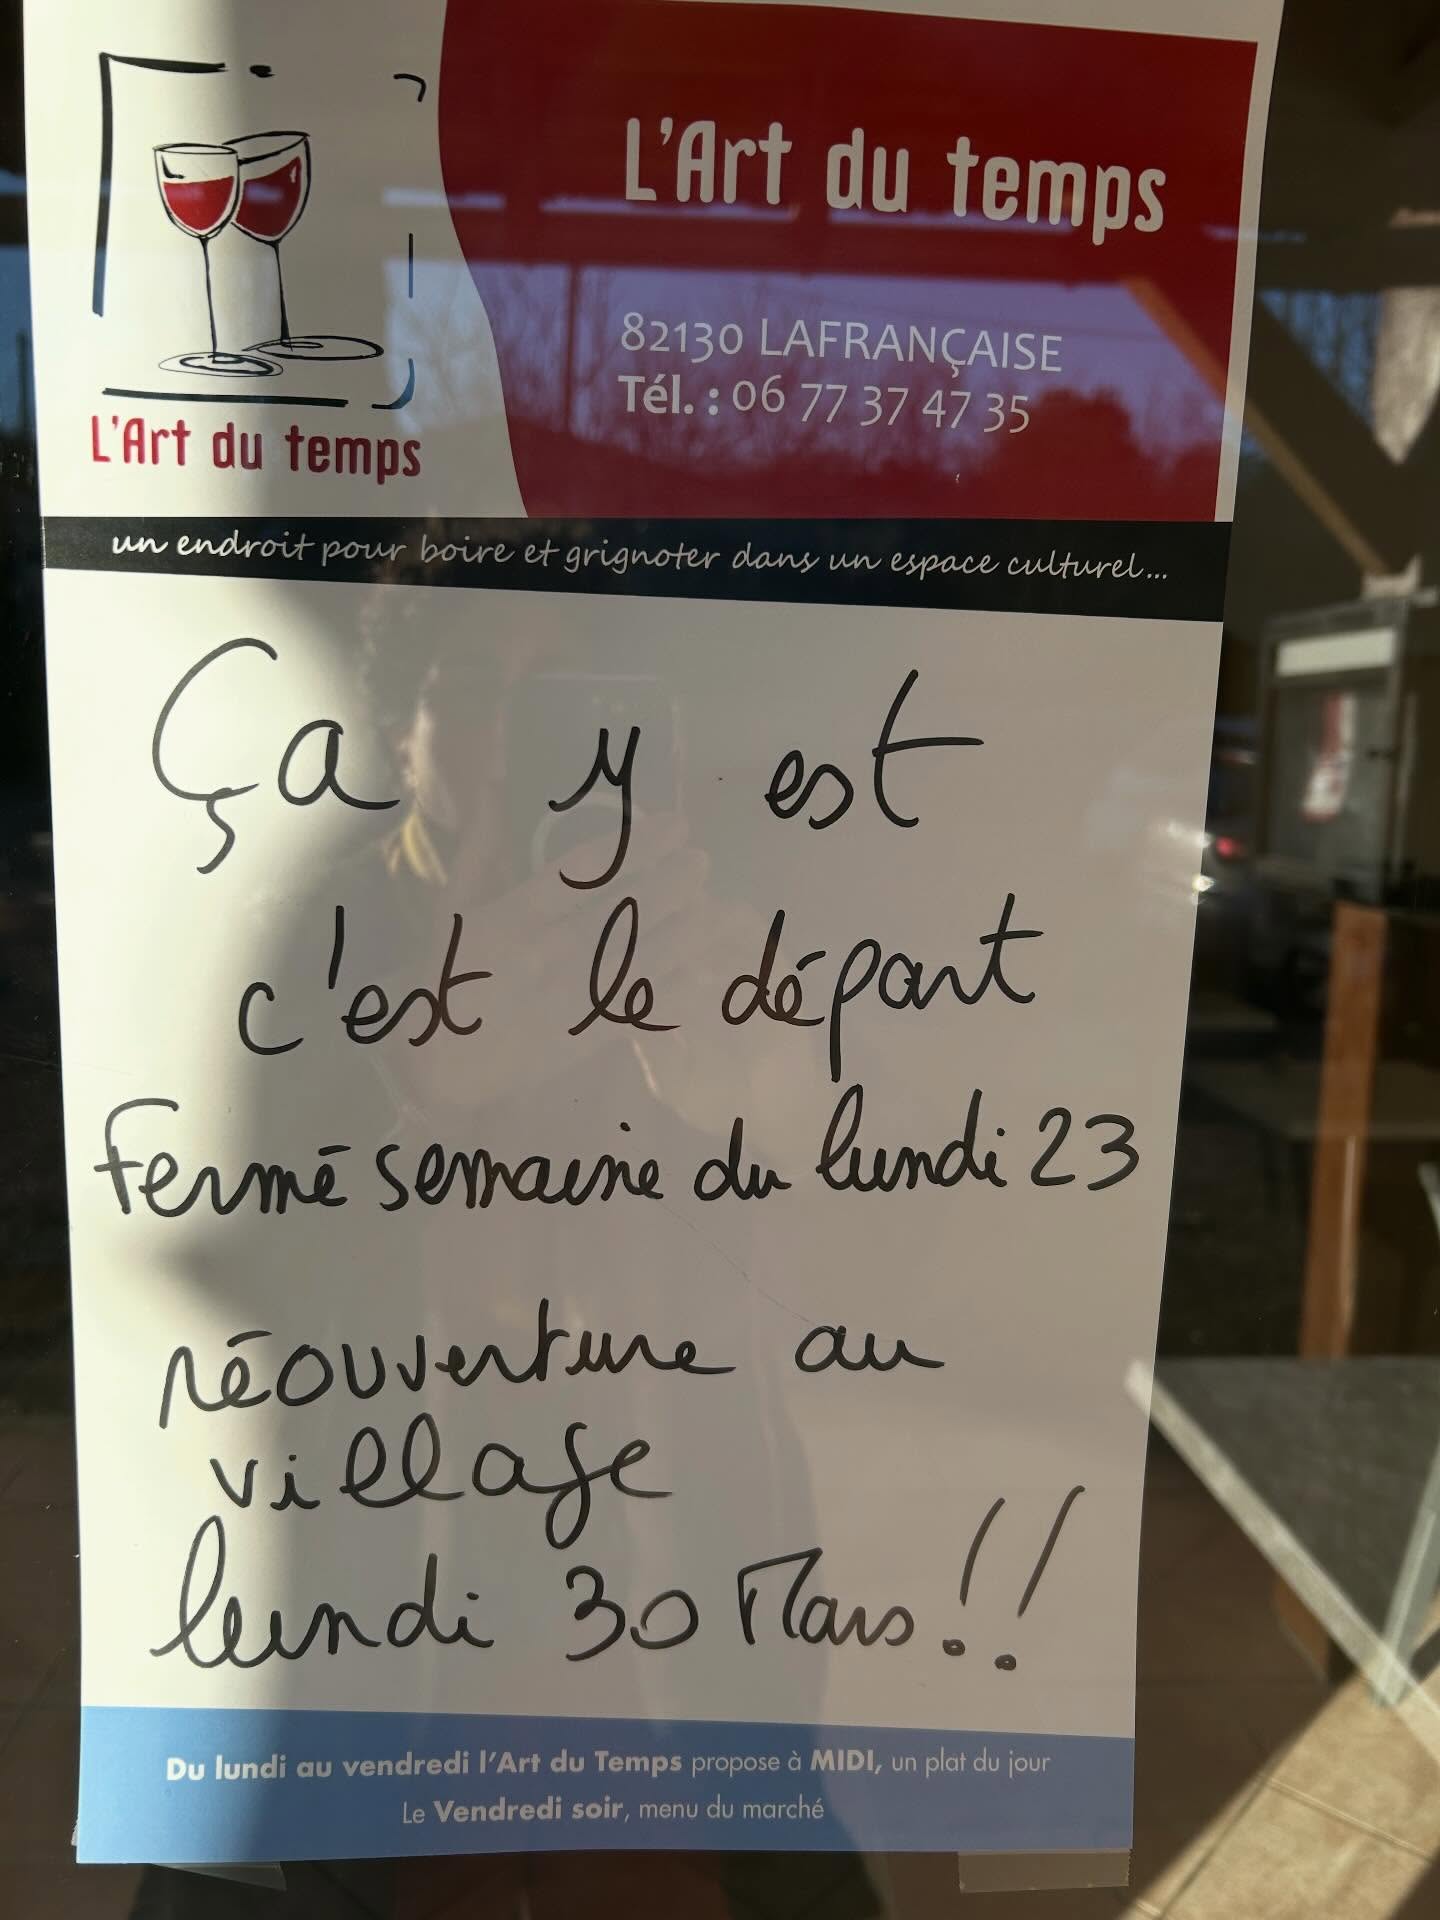 L'Art du temps
82130 LAFRANÇAISE
Tél. : 06 77 37 47 35
L'Art du temps
un endroit pour boire et grignoter dans un espace culturel...
Ça y est
c'est le départ
Fermé semaine du lundi 23
réouverture au
village
lundi 30 Mars !!
Du lundi au vendredi l'Art du Temps propose à MIDI, un plat du jour
Le Vendredi soir, menu du marché